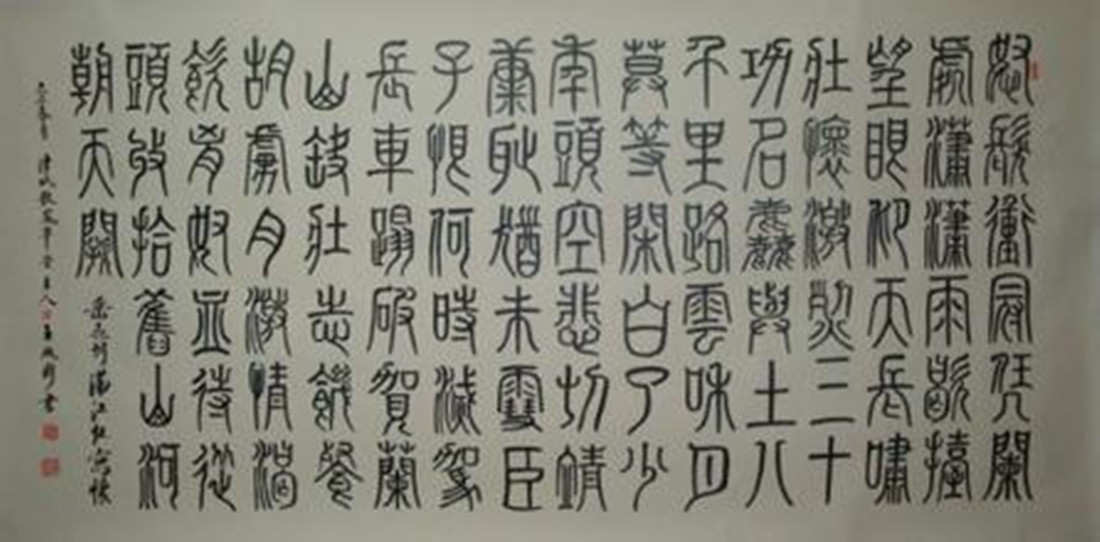 怒髮衝冠凭闌
處瀟瀟雨歇擡
望眼仰天長嘯
壯懷激烈三十
功名塵與土八
千里路雲和月
莫等閑白了少
年頭空悲切靖
康恥猶未雪臣
子恨何時滅駕
長車蹋破賀蘭
山缺壯志飢餐
胡虜肉激情渴
飲匈奴血待從
頭收拾舊山河
朝天闕
岳飛詞滿江紅寫懷